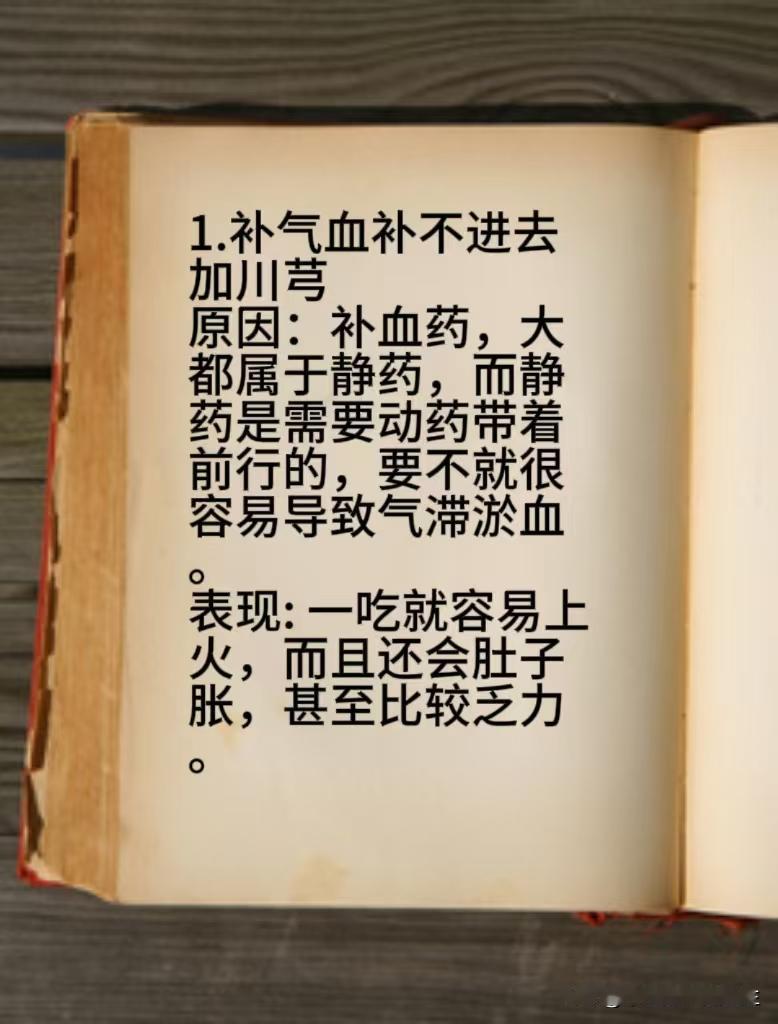 1.补气血补不进去
加川芎
原因：补血药，大
都属于静药，而静
药是需要动药带着
前行的，要不就很
容易导致气滞淤血
。
表现: 一吃就容易上
火，而且还会肚子
胀，甚至比较乏力
。